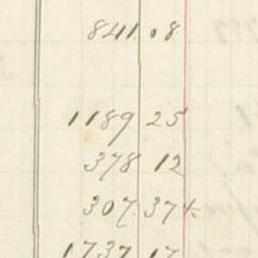 841.08
1189 25
378 12
307.37½
1737 17